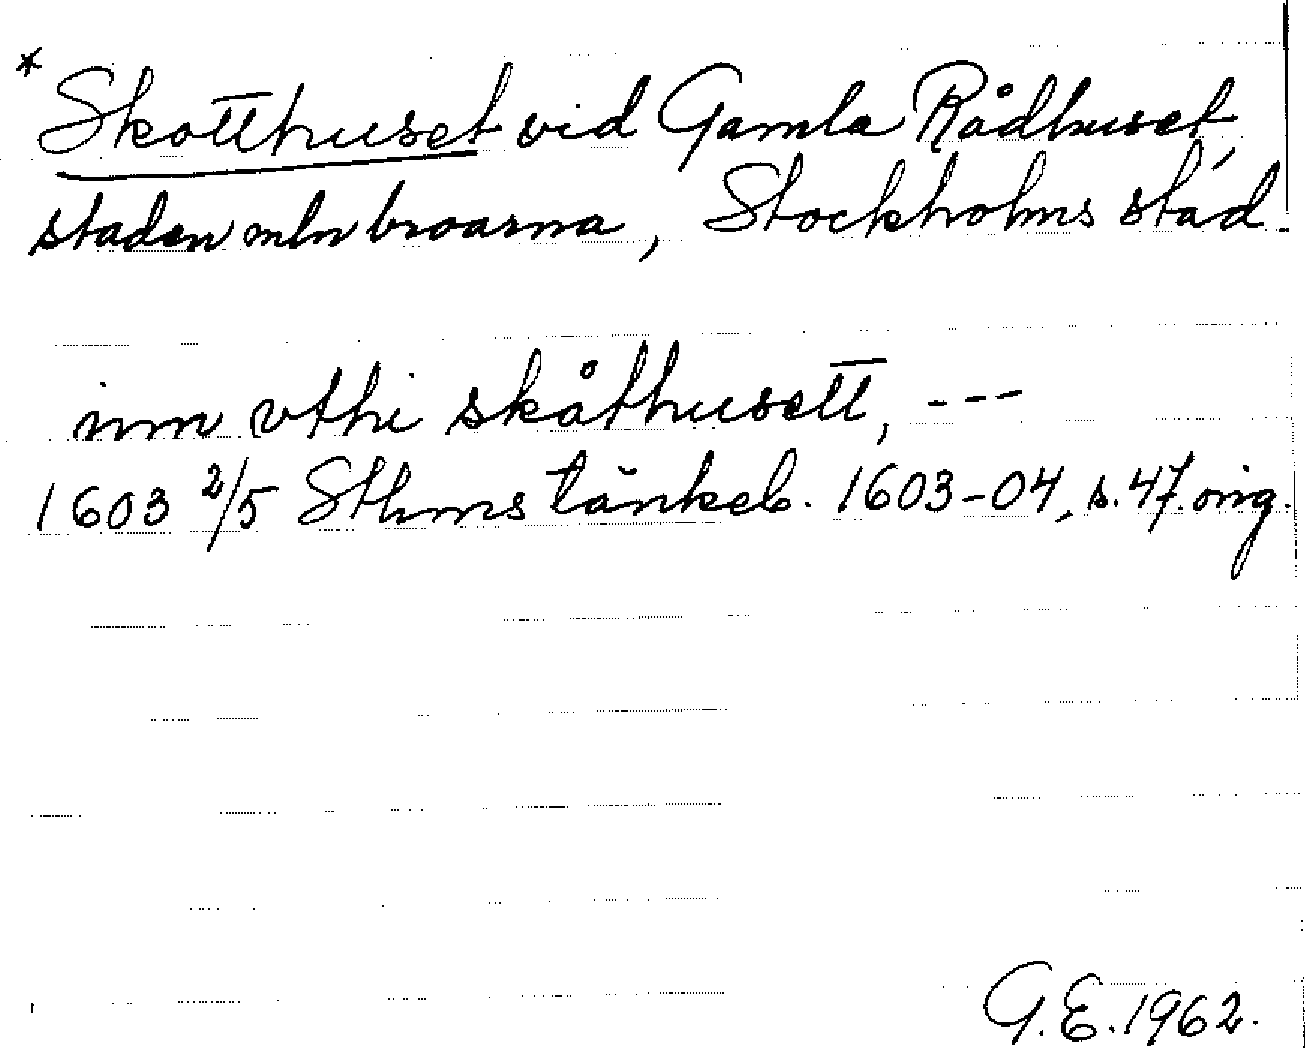 * Skotthuset vid Gamla Rådhuset,
staden mln broarna, Stockholms stad.
inn vthi skåthusett, ---
1603 2/5 Sthms tänkeb. 1603-04, s. 47. orig.
G.E. 1962.